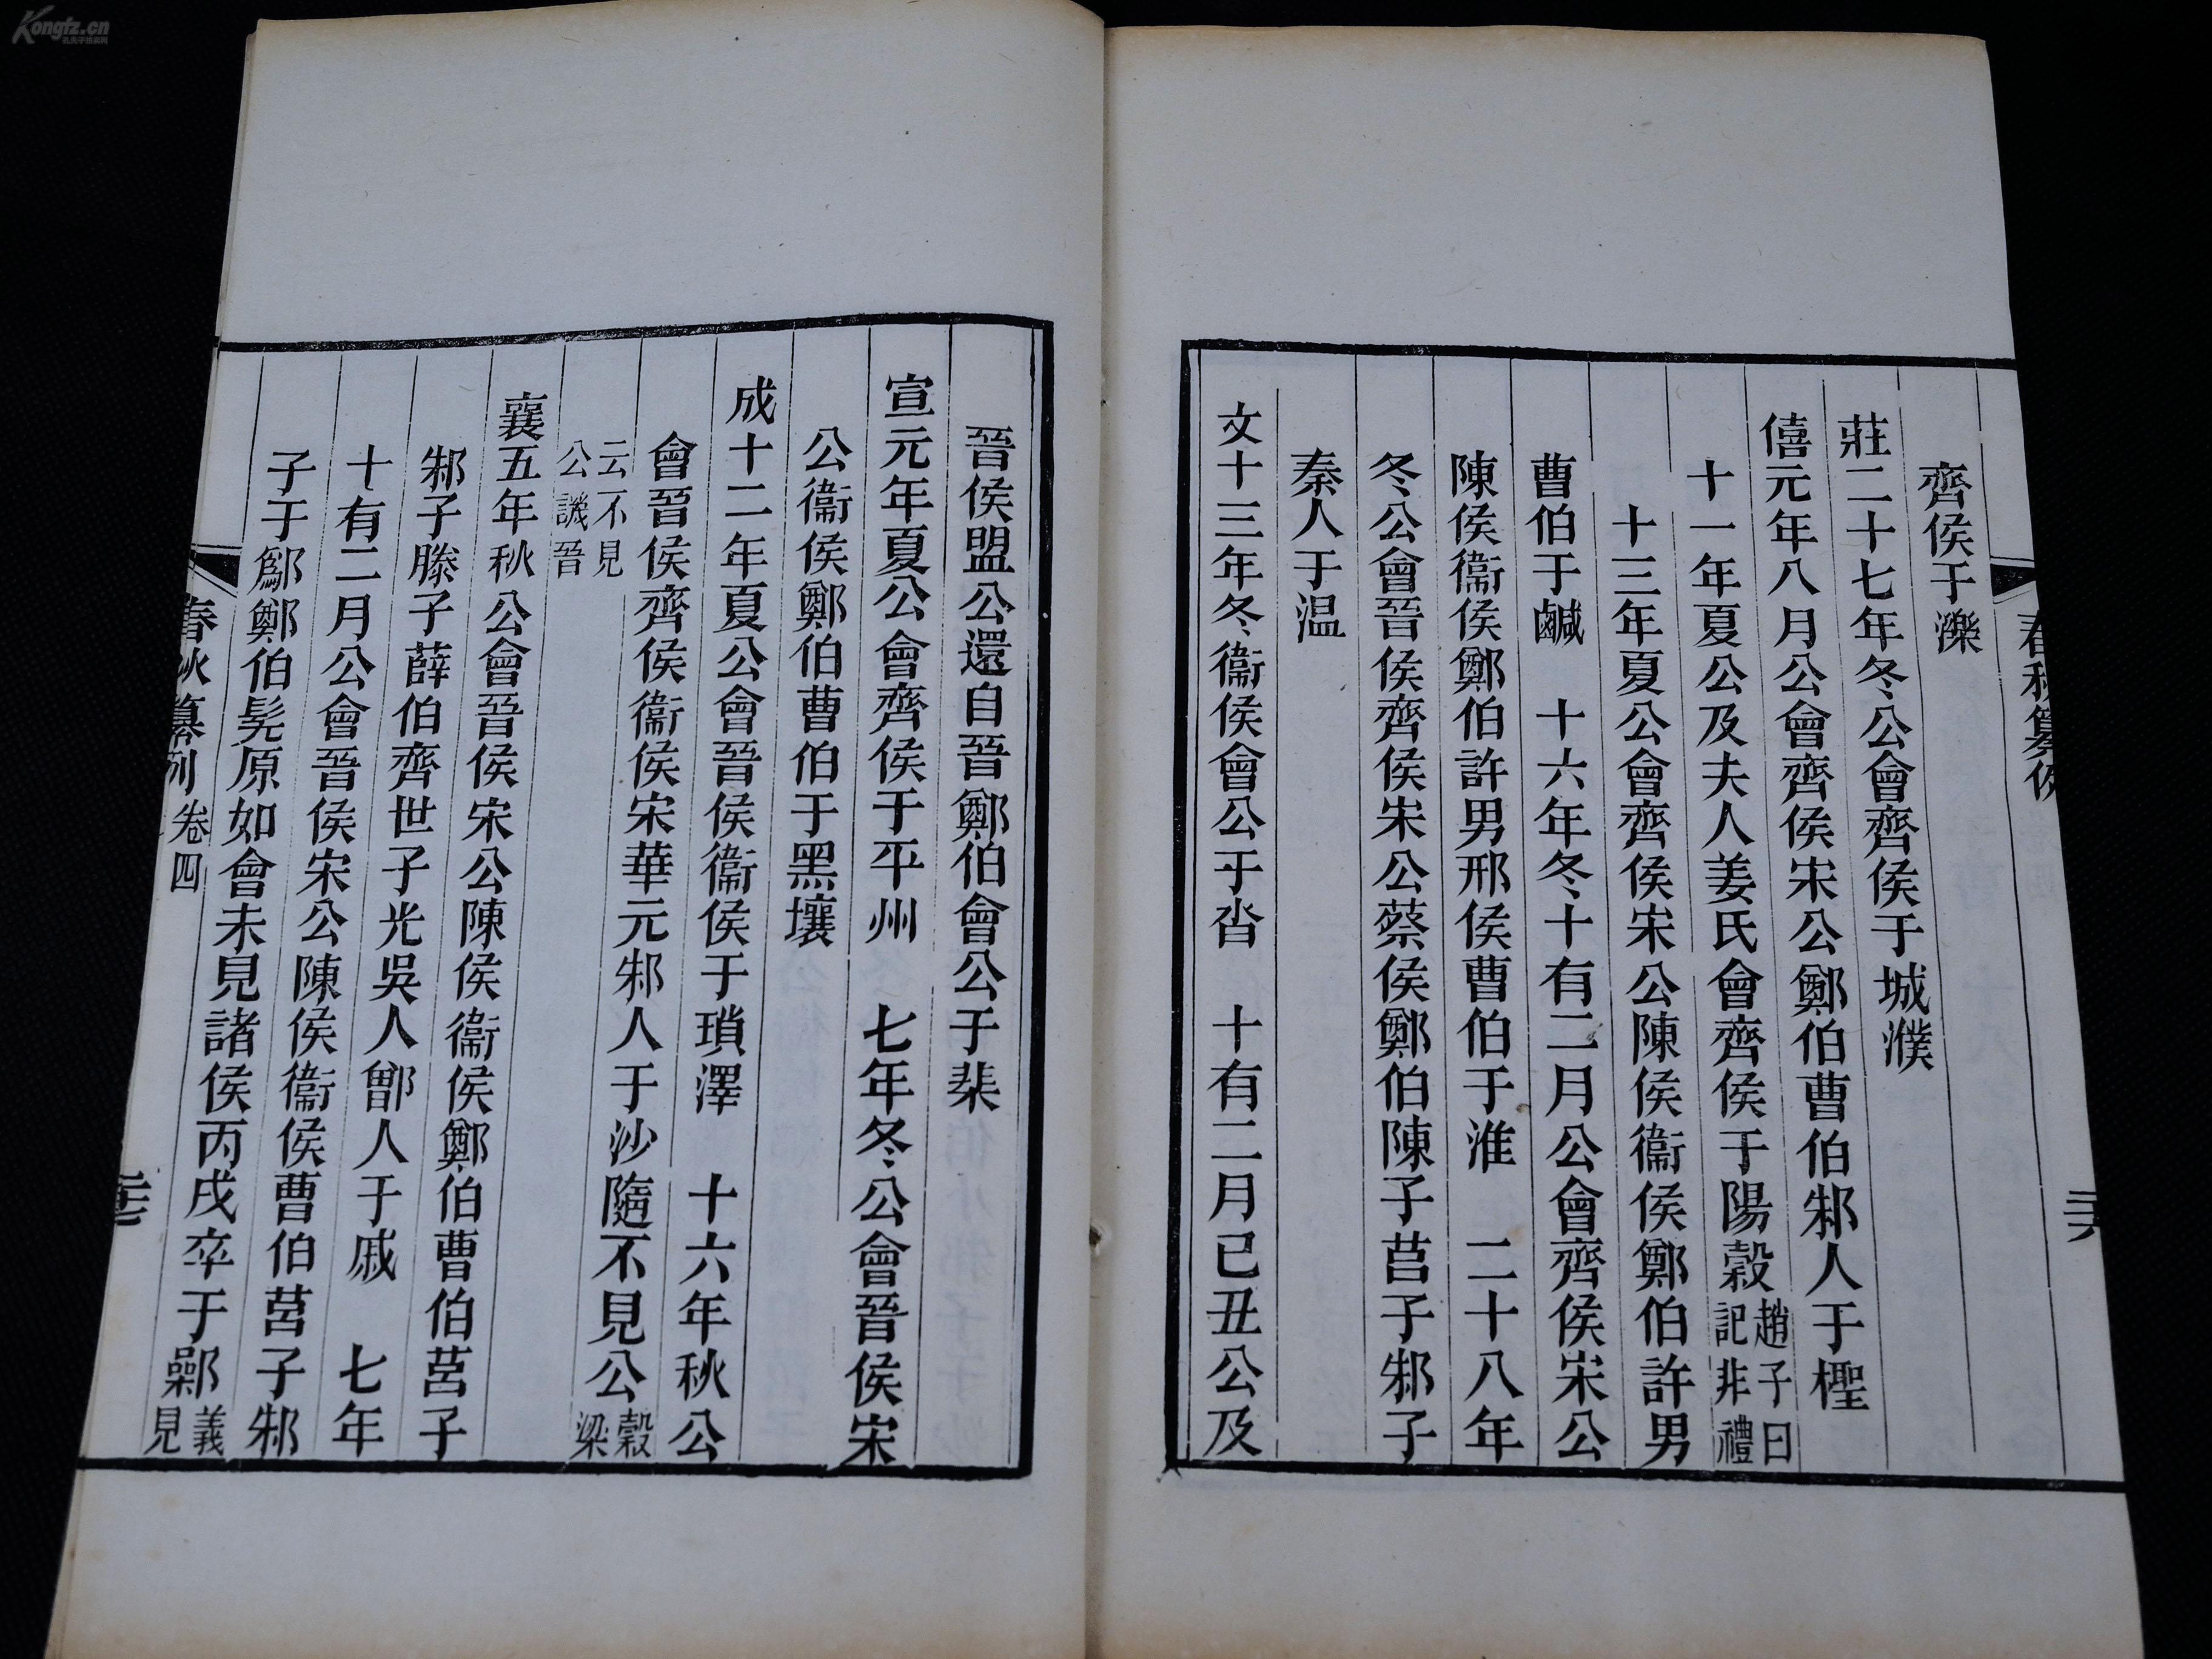 Kongfz.cn
春秋纂例
二六
齊侯于濼
莊二十七年冬公會齊侯于城濮
僖元年八月公會齊侯宋公鄭伯曹伯邾人于檉
十一年夏公及夫人姜氏會齊侯于陽穀趙子曰記非禮
十三年夏公會齊侯宋公陳侯衞侯鄭伯許男
曹伯于鹹　十六年冬十有二月公會齊侯宋公
陳侯衞侯鄭伯許男邢侯曹伯于淮　二十八年
冬公會晉侯齊侯宋公蔡侯鄭伯陳子莒子邾子
秦人于温
文十三年冬衞侯會公于沓　十有二月已丑公及
晉侯盟公還自晉鄭伯會公于棐
宣元年夏公會齊侯于平州　七年冬公會晉侯宋
公衞侯鄭伯曹伯于黑壤
成十二年夏公會晉侯衞侯于瑣澤　十六年秋公
會晉侯齊侯衞侯宋華元邾人于沙隨不見公穀梁
云不見公譏晉
襄五年秋公會晉侯宋公陳侯衞侯鄭伯曹伯莒子
邾子滕子薛伯齊世子光吳人鄫人于戚　七年
十有二月公會晉侯宋公陳侯衞侯曹伯莒子邾
子于鄬鄭伯髡原如會未見諸侯丙戌卒于鄵義見
春秋纂例　卷四
二七